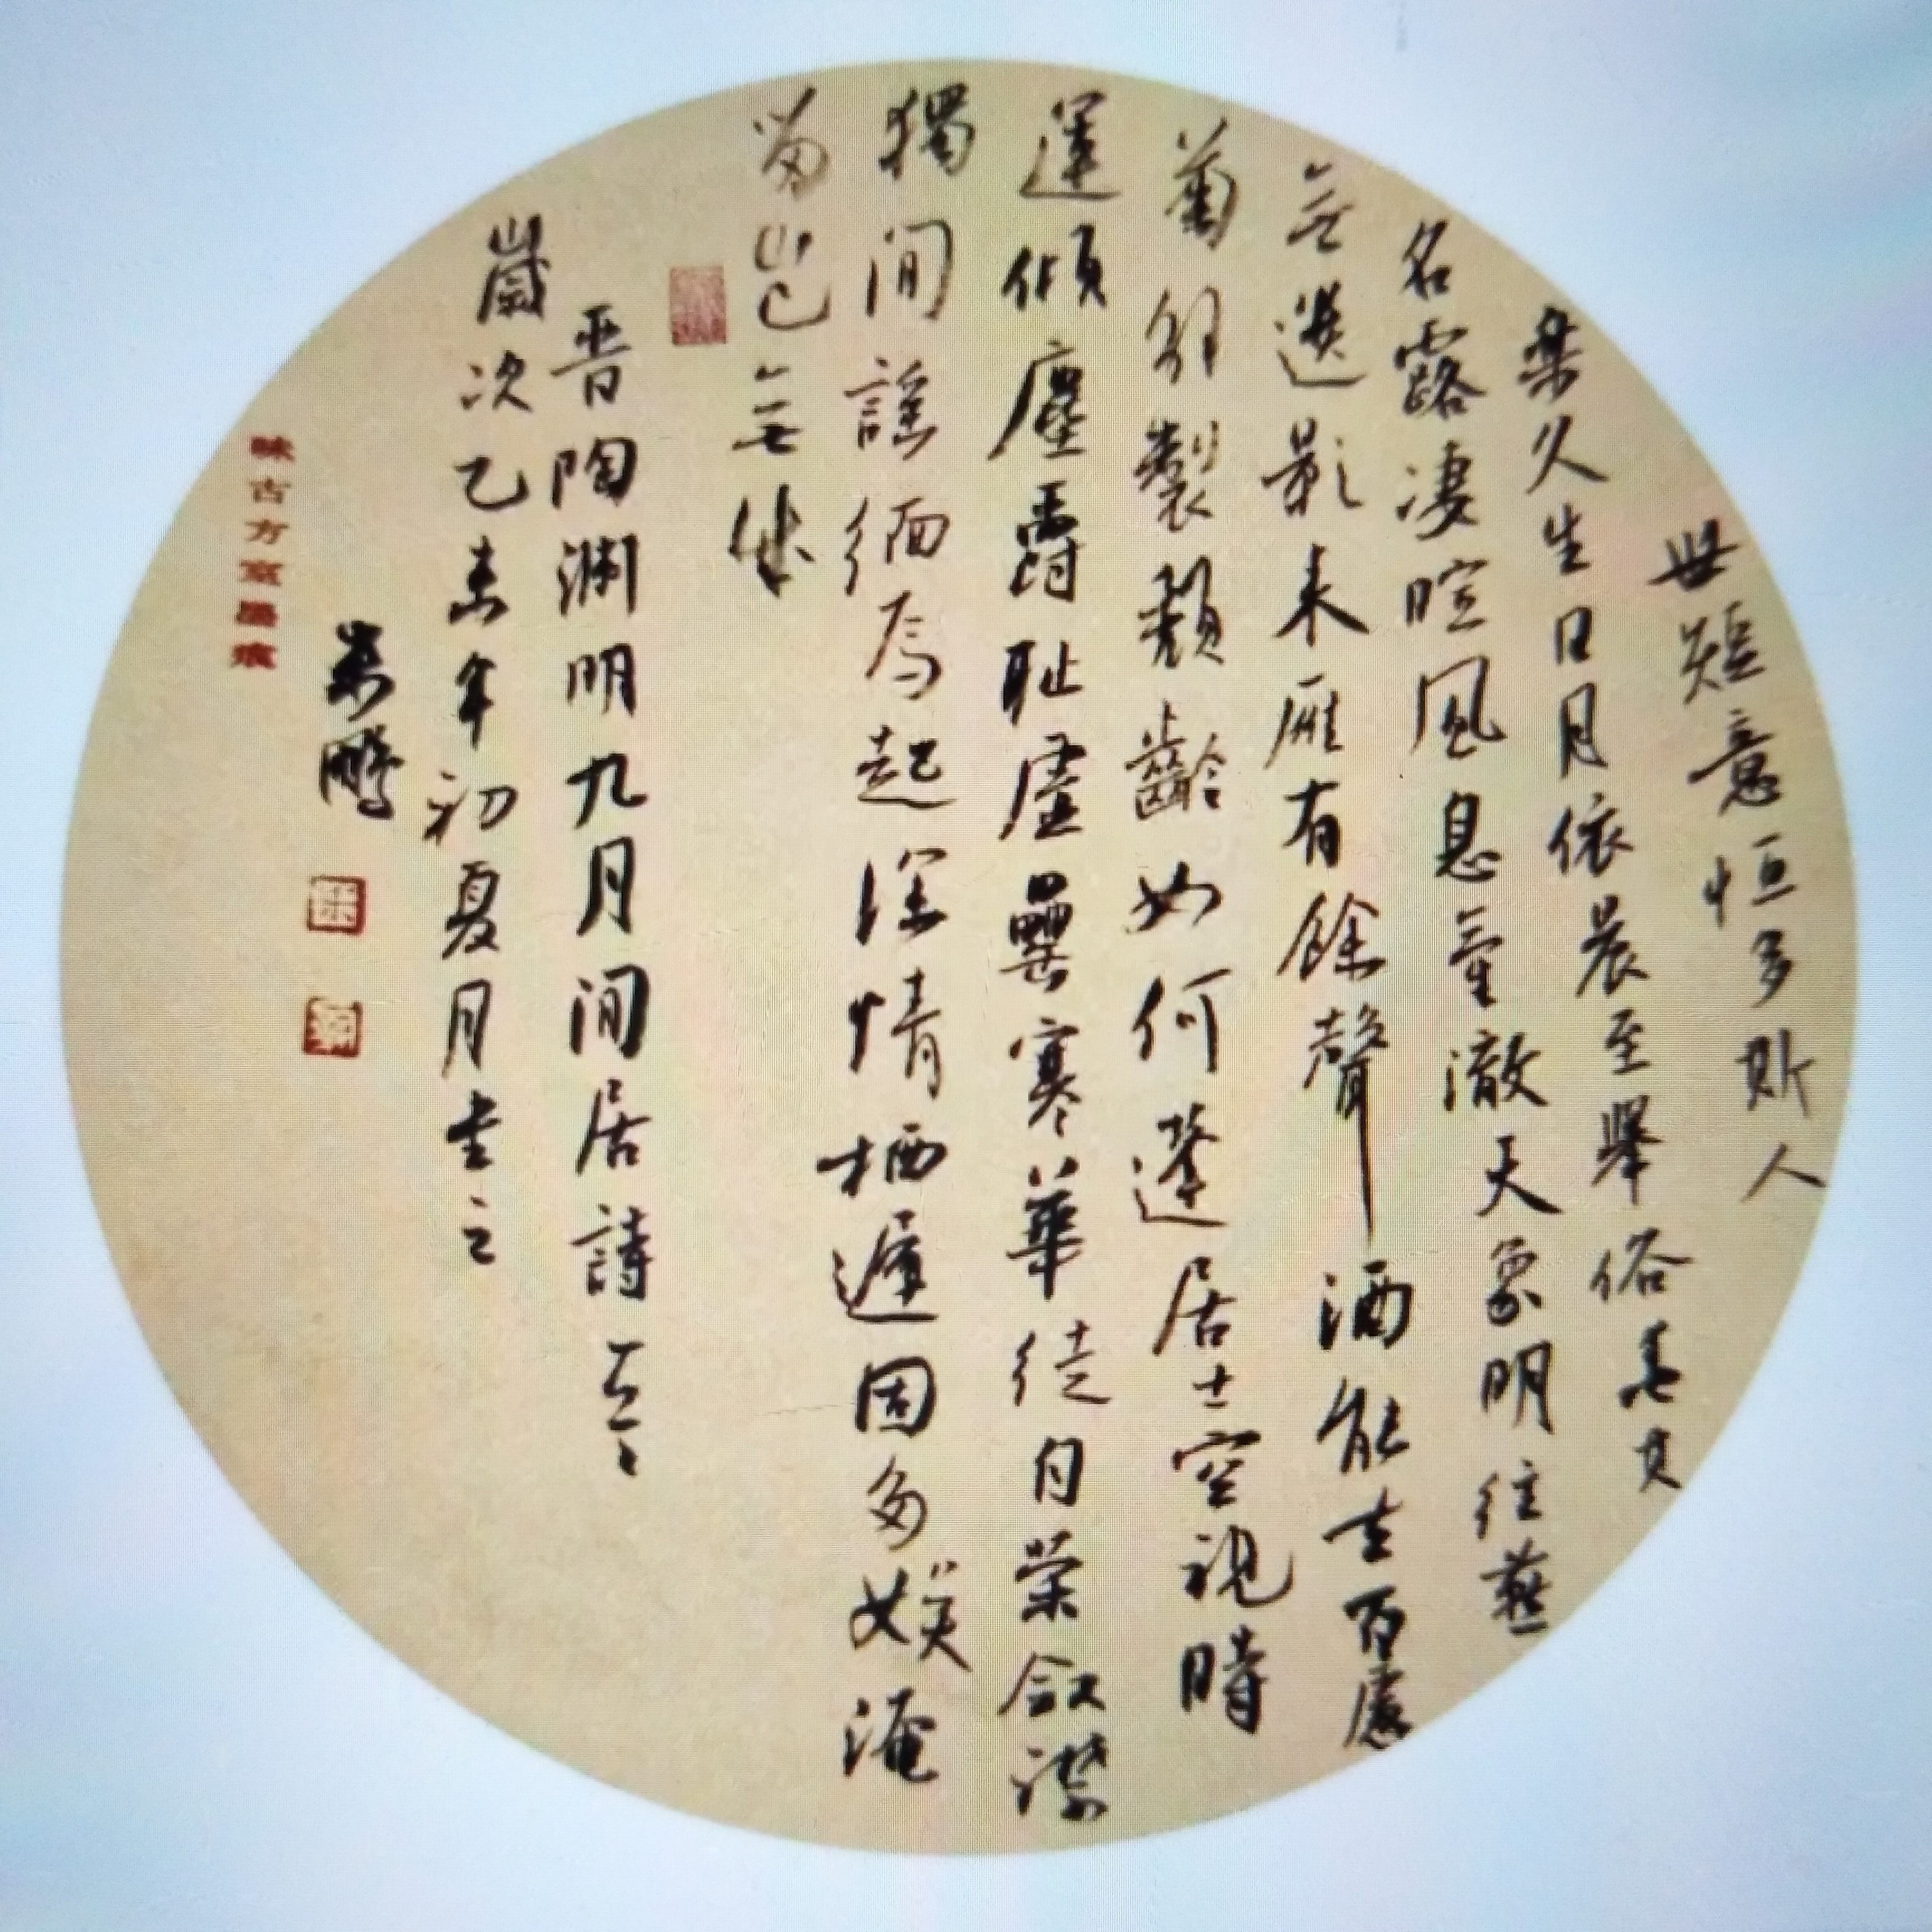 世短意恒多斯人
樂久生日月依辰至舉俗喜其
名露凄暄風息氣澈天象明往燕
無遺影来雁有餘聲酒能去百慮
菊解製頹齡如何蓬居士空視時
運傾塵爵耻虛罍寒華徒自榮斂襟
獨閒謠緬焉起深情栖遲固多娛淹
留豈無成
晋陶淵明九月閒居詩一首
歲次乙未年初夏月書之
鵬
味古方室墨痕